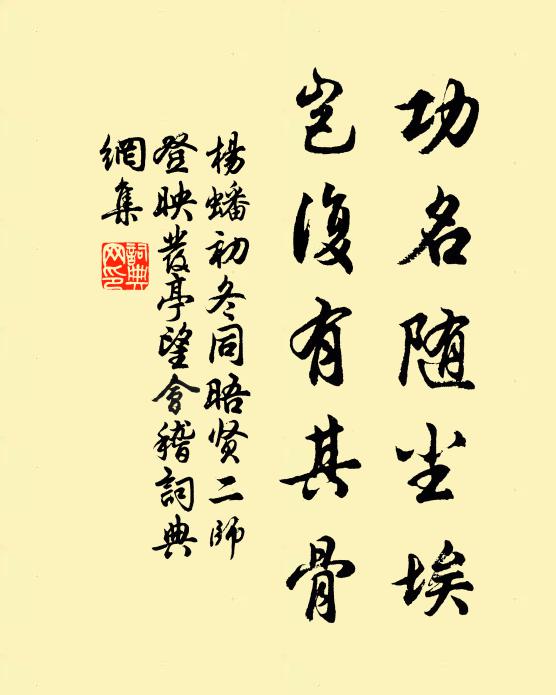 功名随尘埃
岂復有其骨
楊蟠初冬同晤贤二師
登映發亭望會稽詞典
網集
詞典網印